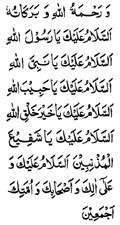 وَ رَحْمَةُ اللهِ وَ بَرَكَاتُهُ
اَلسَّلَامُ عَلَيْكَ يَا رَسُوْلَ اللهِ
اَلسَّلَامُ عَلَيْكَ يَا نَبِيَّ اللهِ
اَلسَّلَامُ عَلَيْكَ يَا حَبِيْبَ اللهِ
اَلسَّلَامُ عَلَيْكَ يَا خَيْرَ خَلْقِ اللهِ
اَلسَّلَامُ عَلَيْكَ يَا شَفِيْعَ
الْمُذْنِبِيْنَ اَلسَّلَامُ عَلَيْكَ وَ
عَلَىٰ اٰلِكَ وَ اَصْحَابِكَ وَ اُمَّتِكَ
اَجْمَعِيْنَ